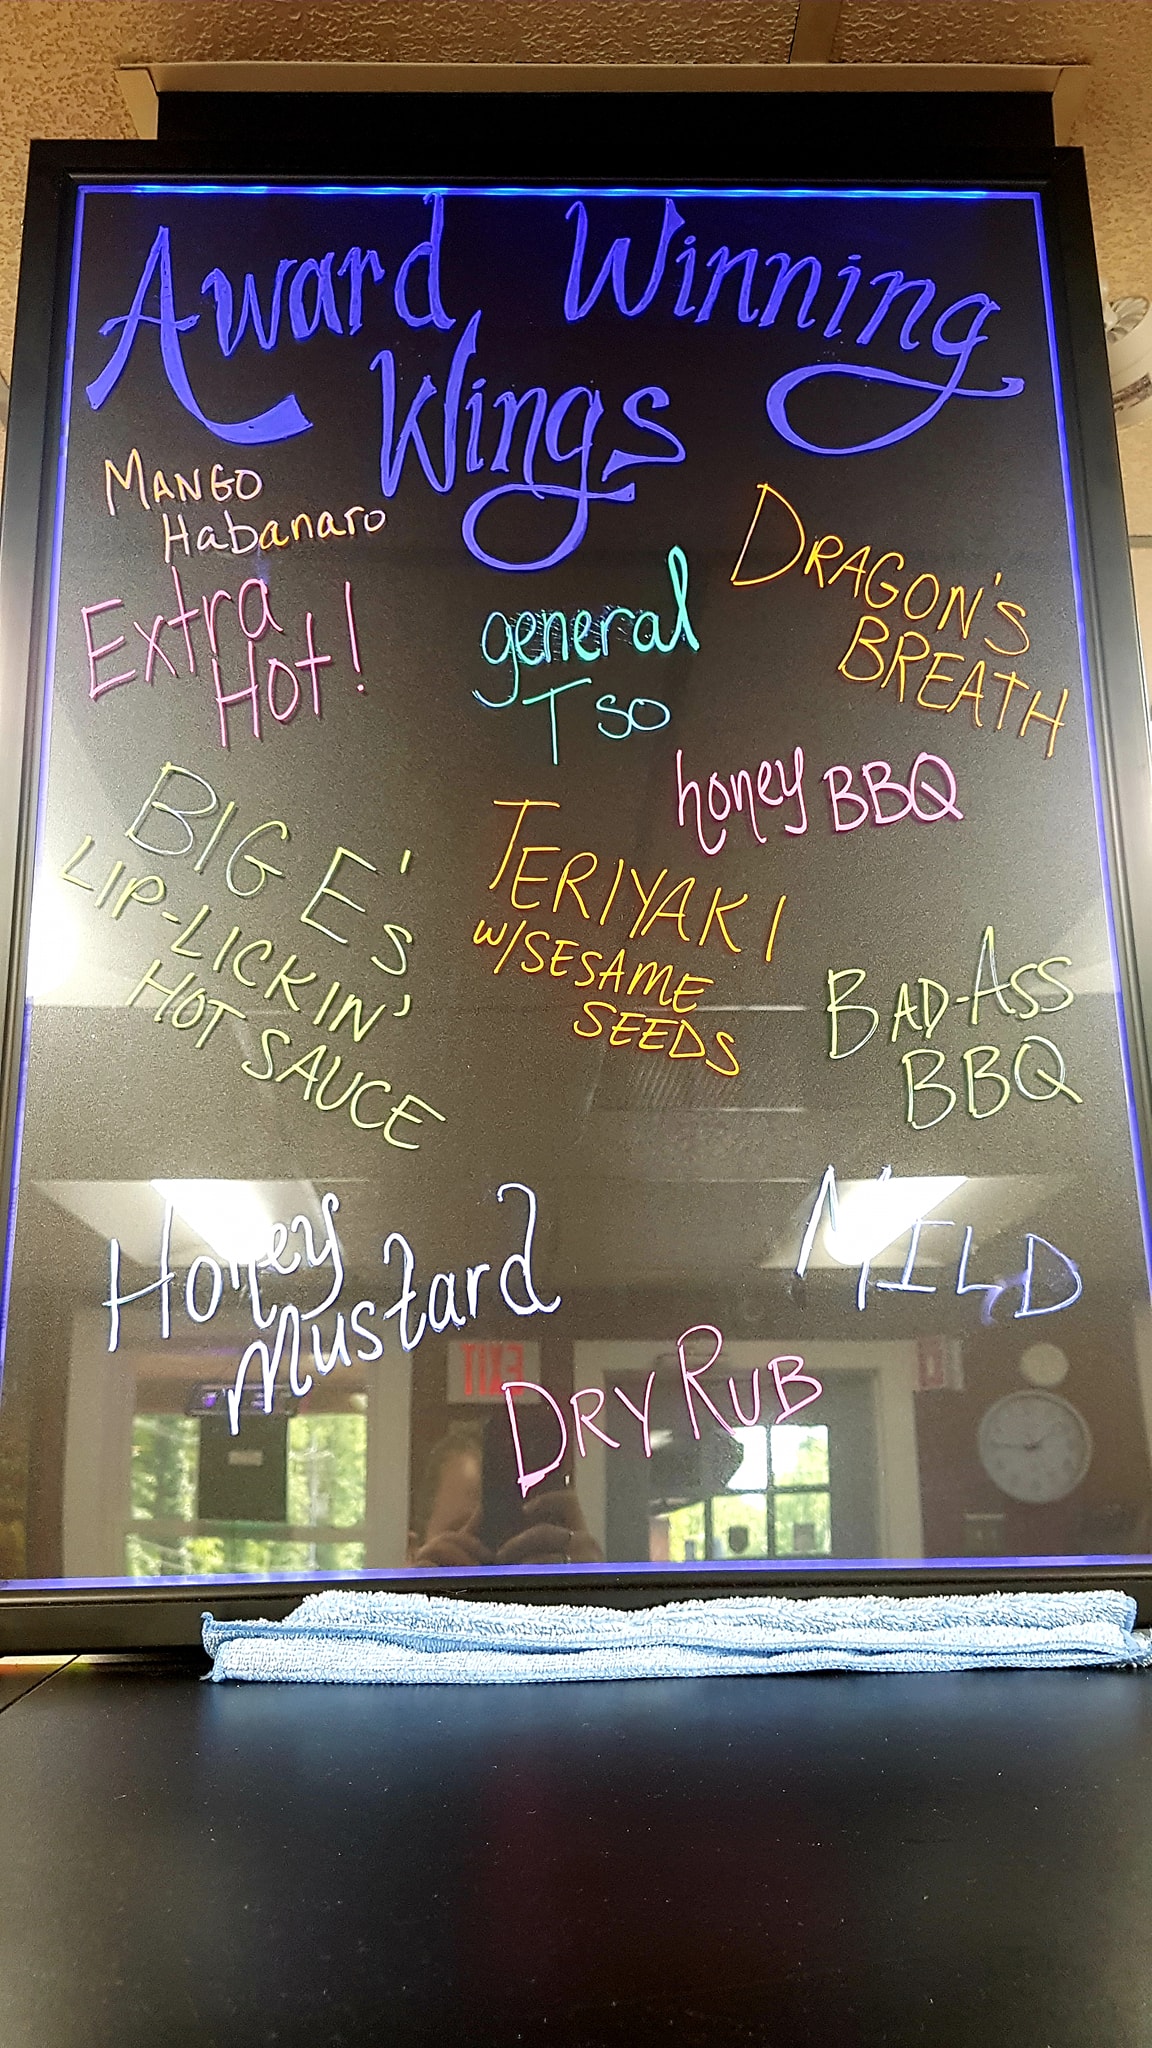 Award Winning
Wings
MANGO
Habanaro
Extra
Hot!
general
Tso
DRAGON'S
BREATH
honey BBQ
BIG E's
LIP-LICKIN'
HOT SAUCE
TERIYAKI
w/SESAME
SEEDS
BAD-ASS
BBQ
Honey
Mustard
MILD
DRY RUB
EXIT